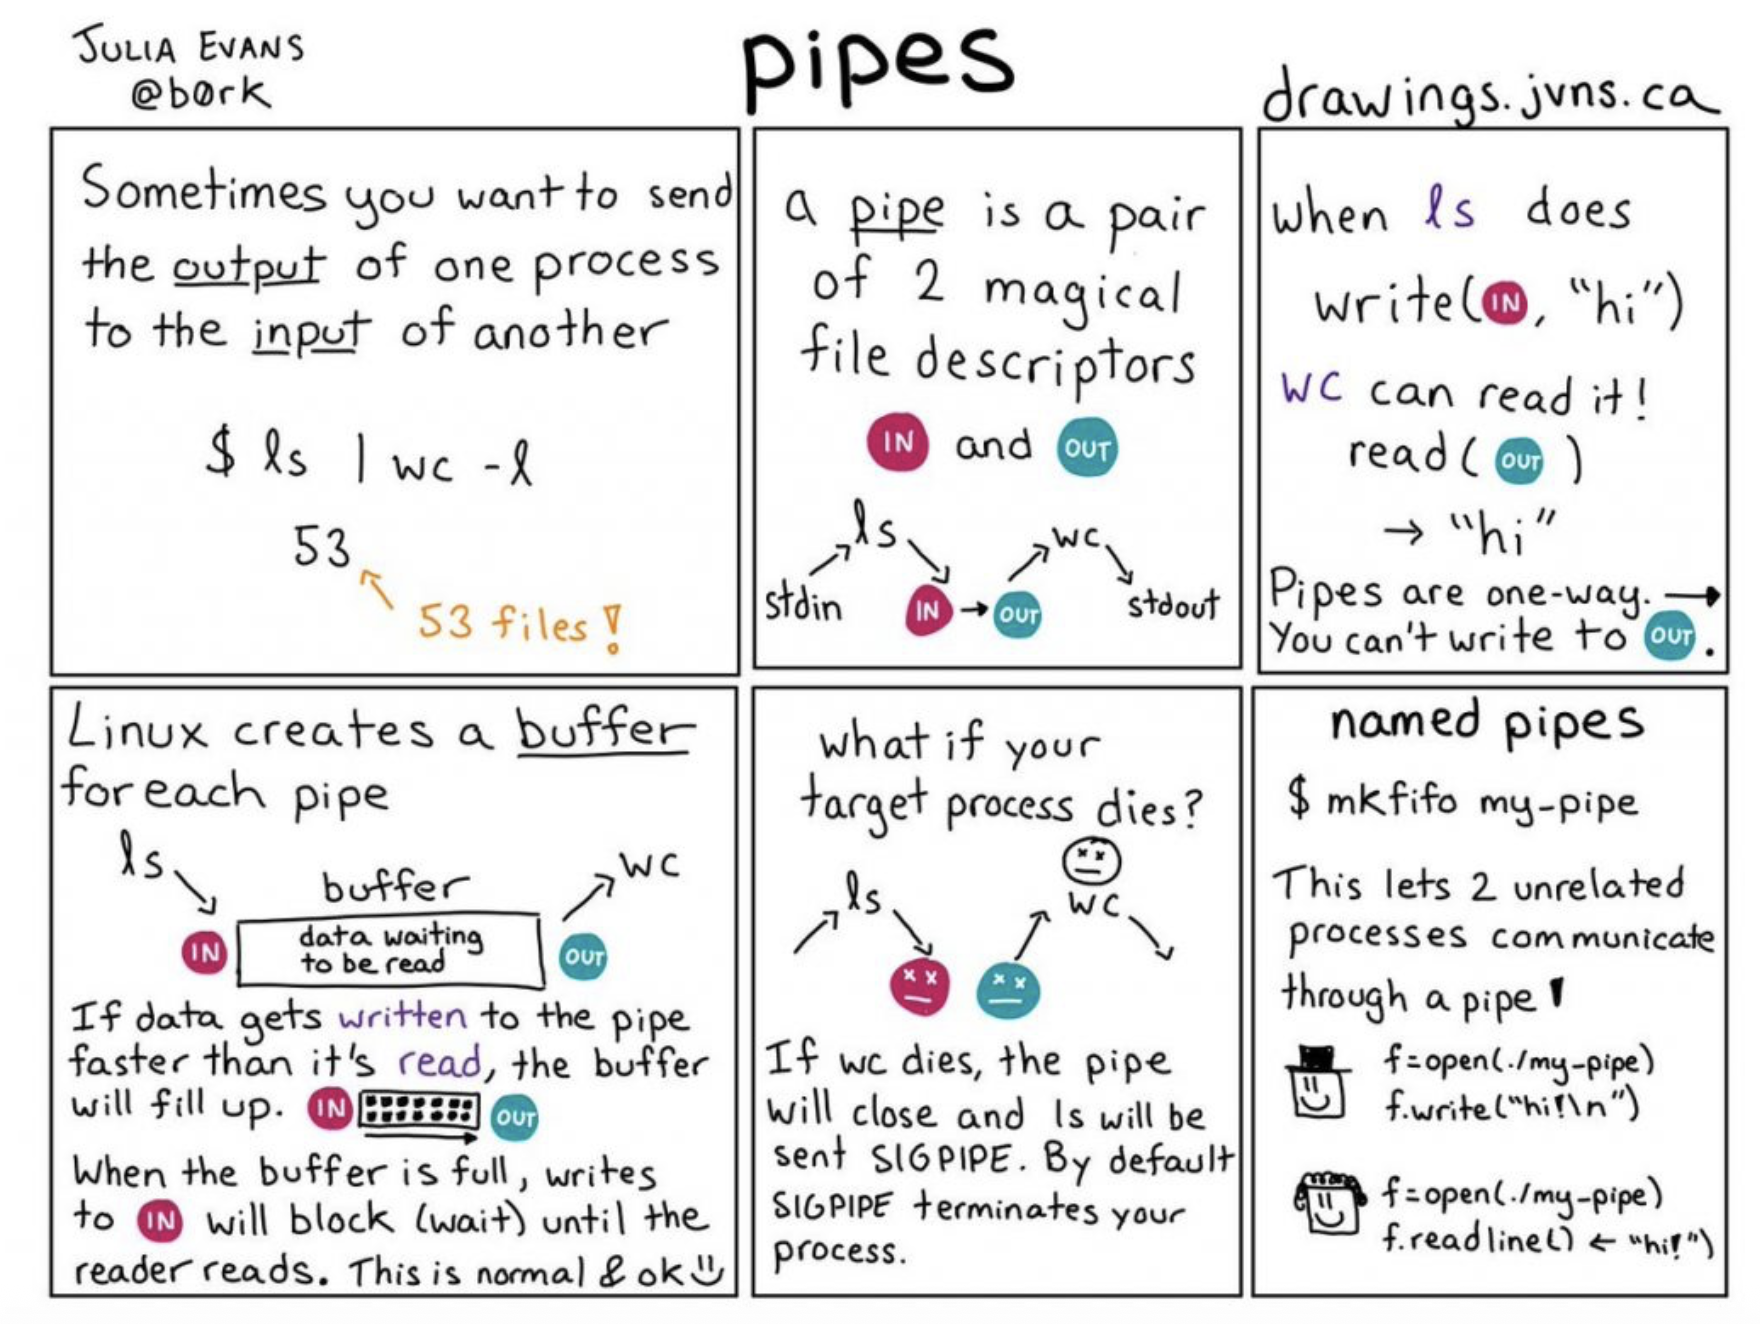 JULIA EVANS
@b0rk
pipes
drawings.jvns.ca
Sometimes you want to send
the output of one process
to the input of another
$ ls | wc -l
53
53 files!
a pipe is a pair
of 2 magical
file descriptors
IN and OUT
ls wc
stdin IN → OUT stdout
when ls does
write(IN, "hi")
wc can read it!
read(OUT)
→ "hi"
Pipes are one-way. →
You can't write to OUT.
Linux creates a buffer
for each pipe
ls buffer wc
IN data waiting OUT
to be read
If data gets written to the pipe
faster than it's read, the buffer
will fill up. IN OUT
When the buffer is full, writes
to IN will block (wait) until the
reader reads. This is normal & ok
what if your
target process dies?
ls wc
If wc dies, the pipe
will close and ls will be
sent SIGPIPE. By default
SIGPIPE terminates your
process.
named pipes
$ mkfifo my-pipe
This lets 2 unrelated
processes communicate
through a pipe!
f=open(./my-pipe)
f.write("hi!\n")
f=open(./my-pipe)
f.readline() ← "hi!")